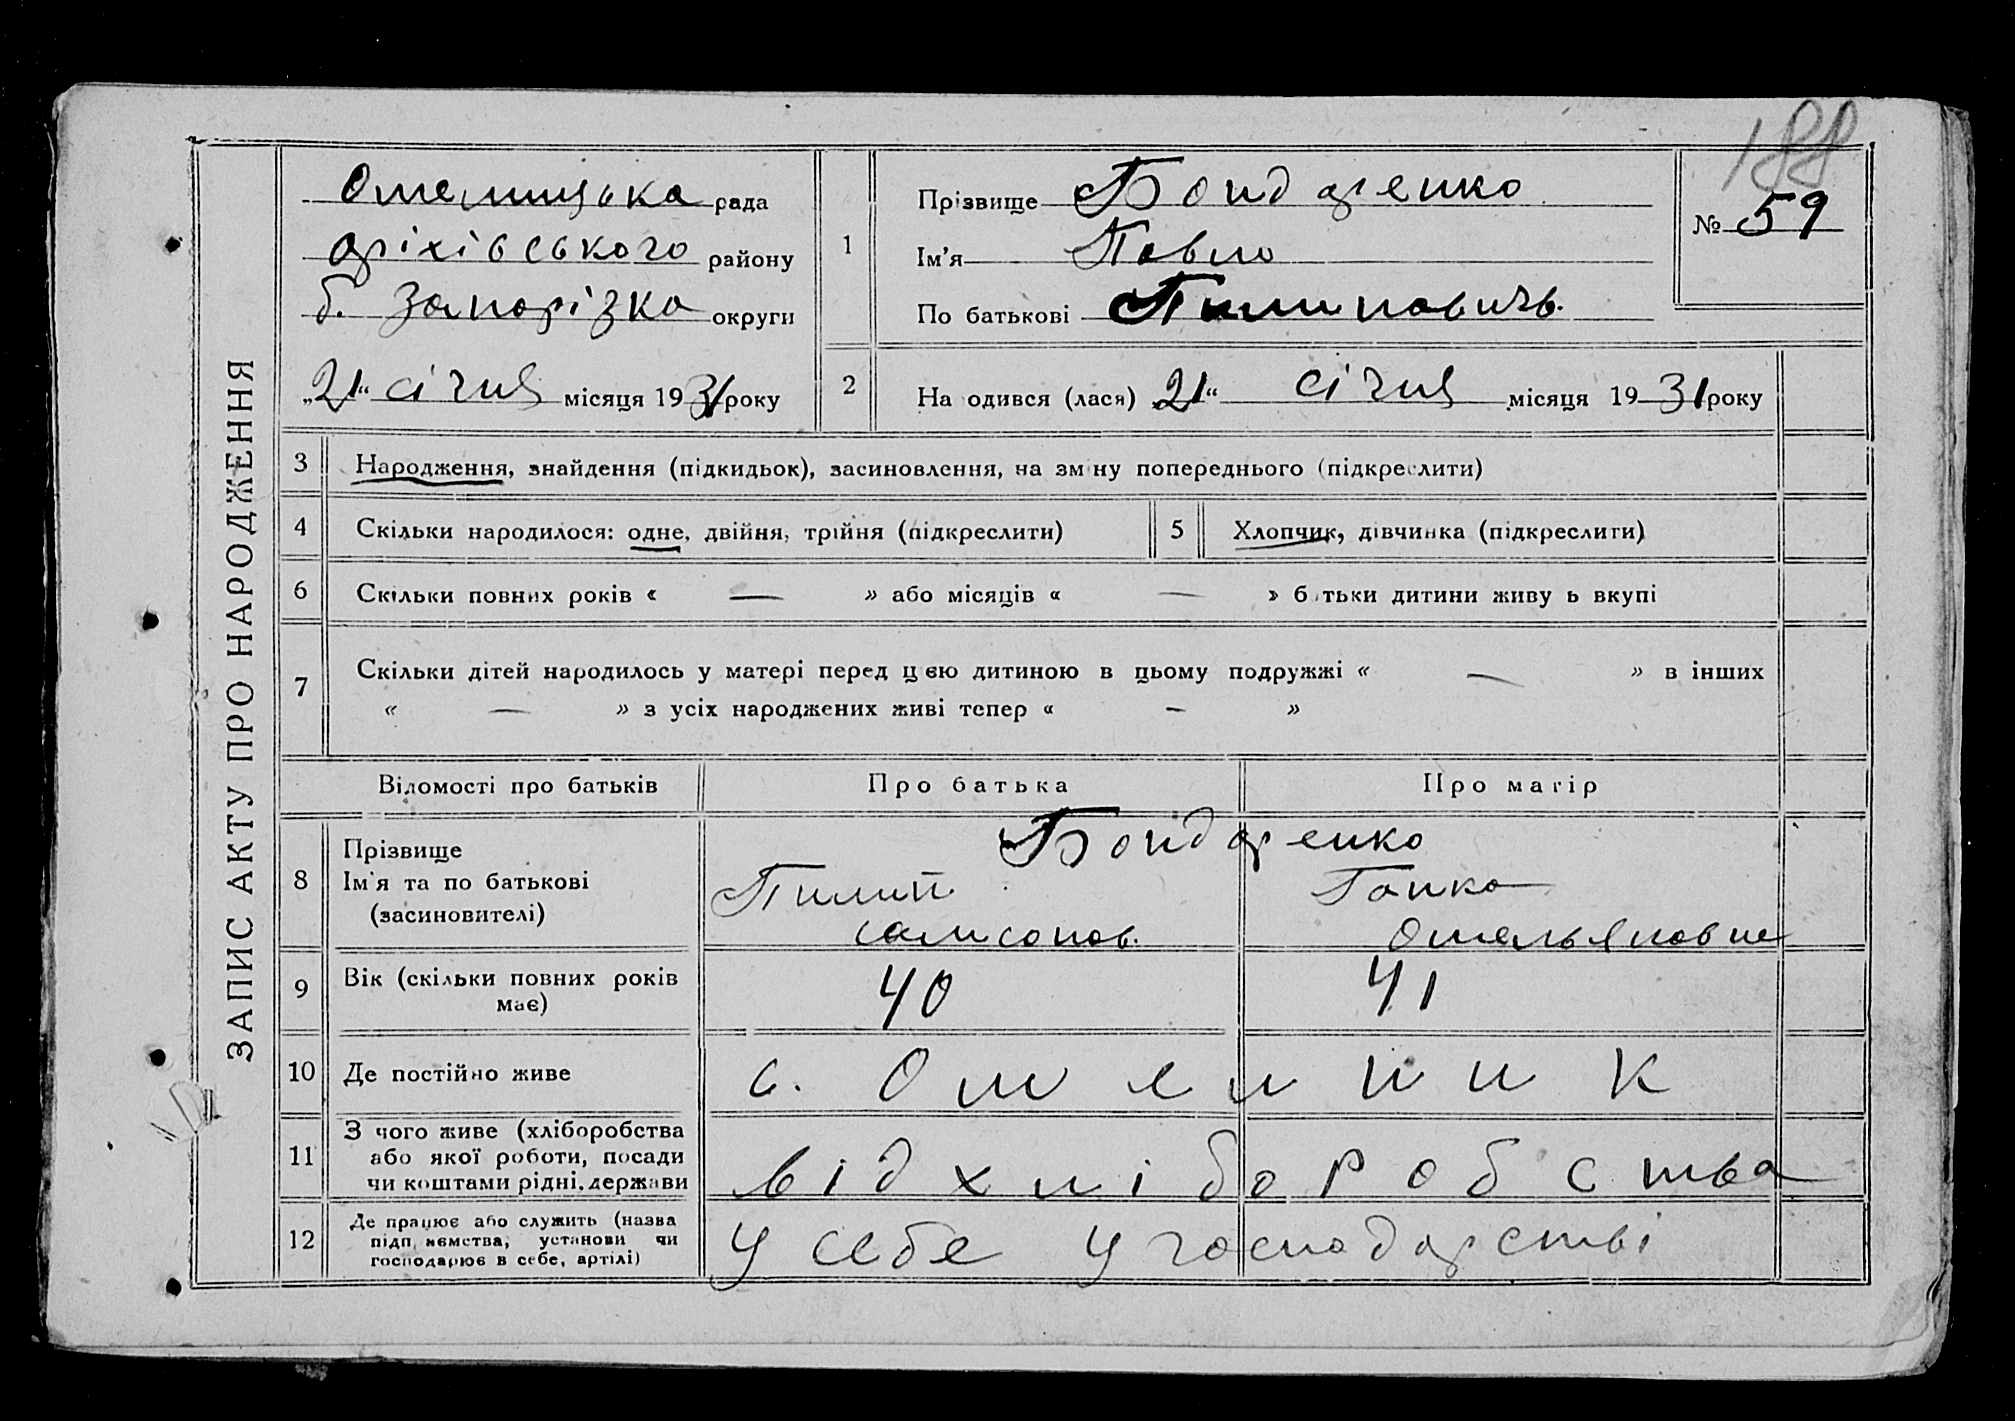 188
ЗАПИС АКТУ ПРО НАРОДЖЕННЯ
Омельницька рада
Оріхівського району
б. Запоріжка округи
„21“ січня місяця 1931 року
1
Прізвище Бондаренко
Ім'я Павло
По батькові Пилиповичь.
№ 59
2
На одився (лася) „21“ січня місяця 1931 року
3 Народження, знайдення (підкидьок), засиновлення, на зміну попереднього (підкреслити)
4 Скільки народилося: одне, двійня, трійня (підкреслити) 5 Хлопчик, дівчинка (підкреслити)
6 Скільки повних років « — » або місяців « — » батьки дитини живуть вкупі
7 Скільки дітей народилось у матері перед цією дитиною в цьому подружжі « — » в інших
« — » з усіх народжених живі тепер « — »
Відомості про батьків Про батька Про матір
8 Прізвище
Ім'я та по батькові
(засиновителі)
Бондаренко
Пилип Гапка
Самсонов. Омельяновна
9 Вік (скільки повних років
має)
40 41
10 Де постійно живе с. Омельник
11 З чого живе (хліборобства
або якої роботи, посади
чи коштами рідні, держави
від хліборобства
12 Де працює або служить (назва
підприємства, установи чи
господарює в себе, артілі)
у себе у господарстві